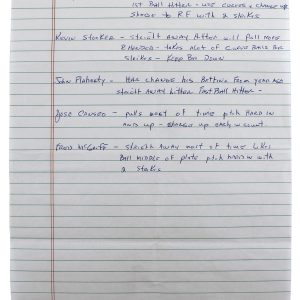 1st Ball Hitter - use curves & change up
Shade to R.F with 2 stakes
Kevin Stocker - straight away hitter will pull more
R handed - takes alot of curve balls for
strikes - Keep Ball Down
John Flaherty - Has change his batting from year ago
straight away hitter Fast Ball Hitter -
Jose Canseo - pulls most of time pitch Hard in
and up - change up early in count.
Fred McGriff - straigth away most of time Likes
Ball middle of plate pitch Hard in with
2 stakes